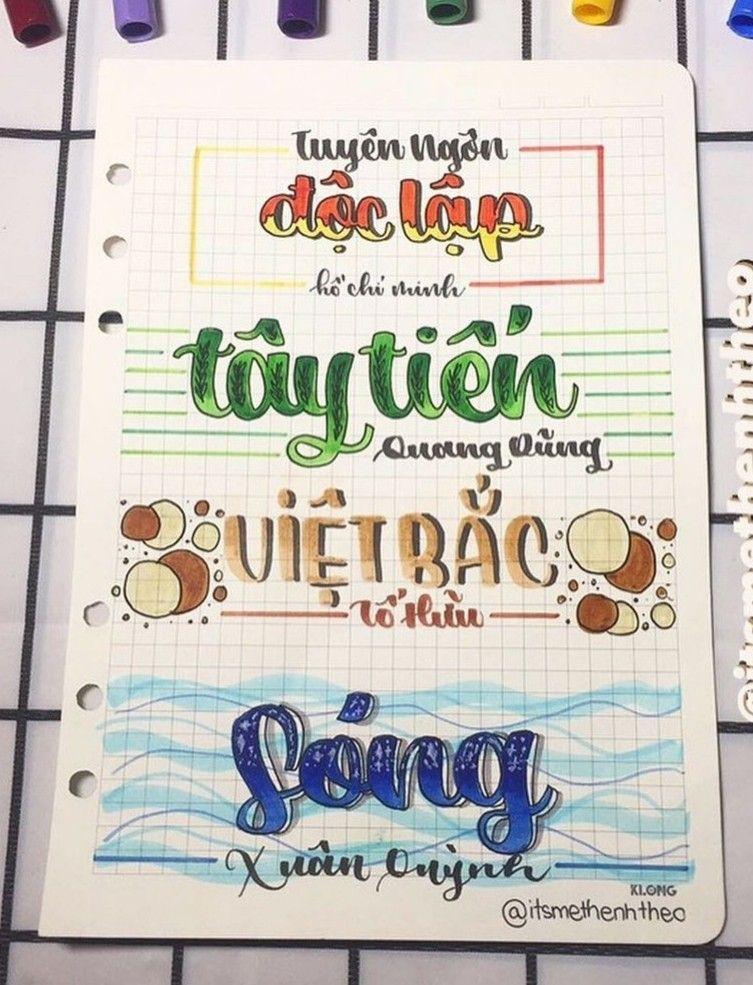 Tuyên Ngôn
độc lập
hồ chí minh
tây tiến
Quang Dũng
VIỆT BẮC
Tố Hữu
Sóng
Xuân Quỳnh
KLONG
@itsmethenhtheo
@itsmethenhtheo